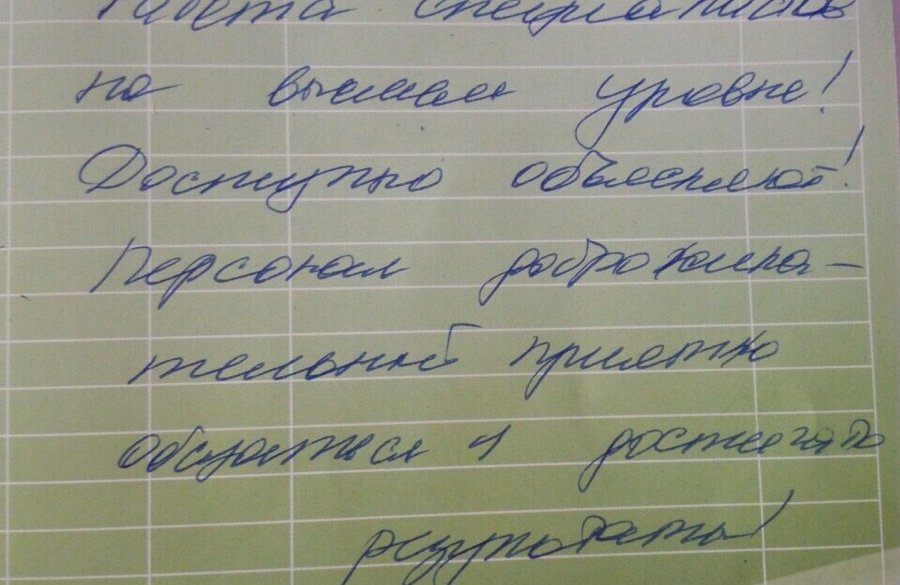 Работа специалистов
на высшем уровне!
Доступно объясняют!
Персонал доброжела-
тельный приятно
общаться и достигать
результаты!